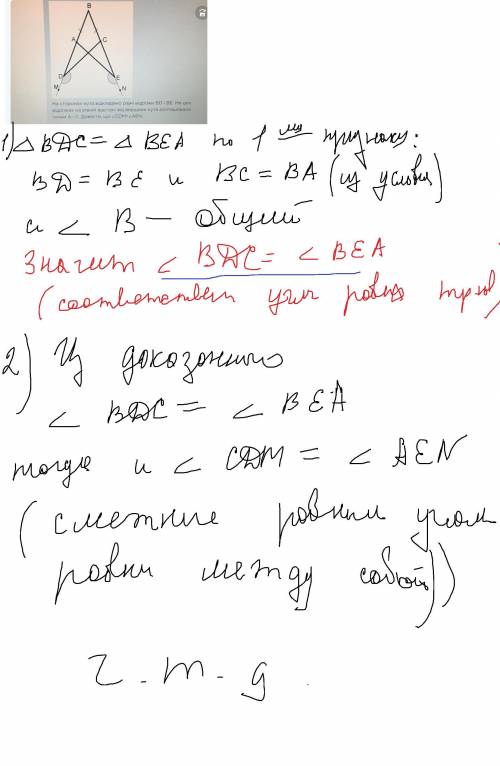 B
A
C
D
E
M
N
На сторонах кута відкладено рівні відрізки BD і BE. На цих
відрізках на рівній відстані від вершини кута розташовано
точки A і C. Доведіть, що ∠CDM = ∠AEN.
1) △ BDC = △ BEA по 1 му признаку:
BD = BE и BC = BA (из условия)
и ∠ B — общий
Значит ∠ BDC = ∠ BEA
(соответствен углы равных треуг)
2) Из доказанного
∠ BDC = ∠ BEA
тогда и ∠ CDM = ∠ AEN
(смежные равным углам
равны между собой))
ч.т.д.